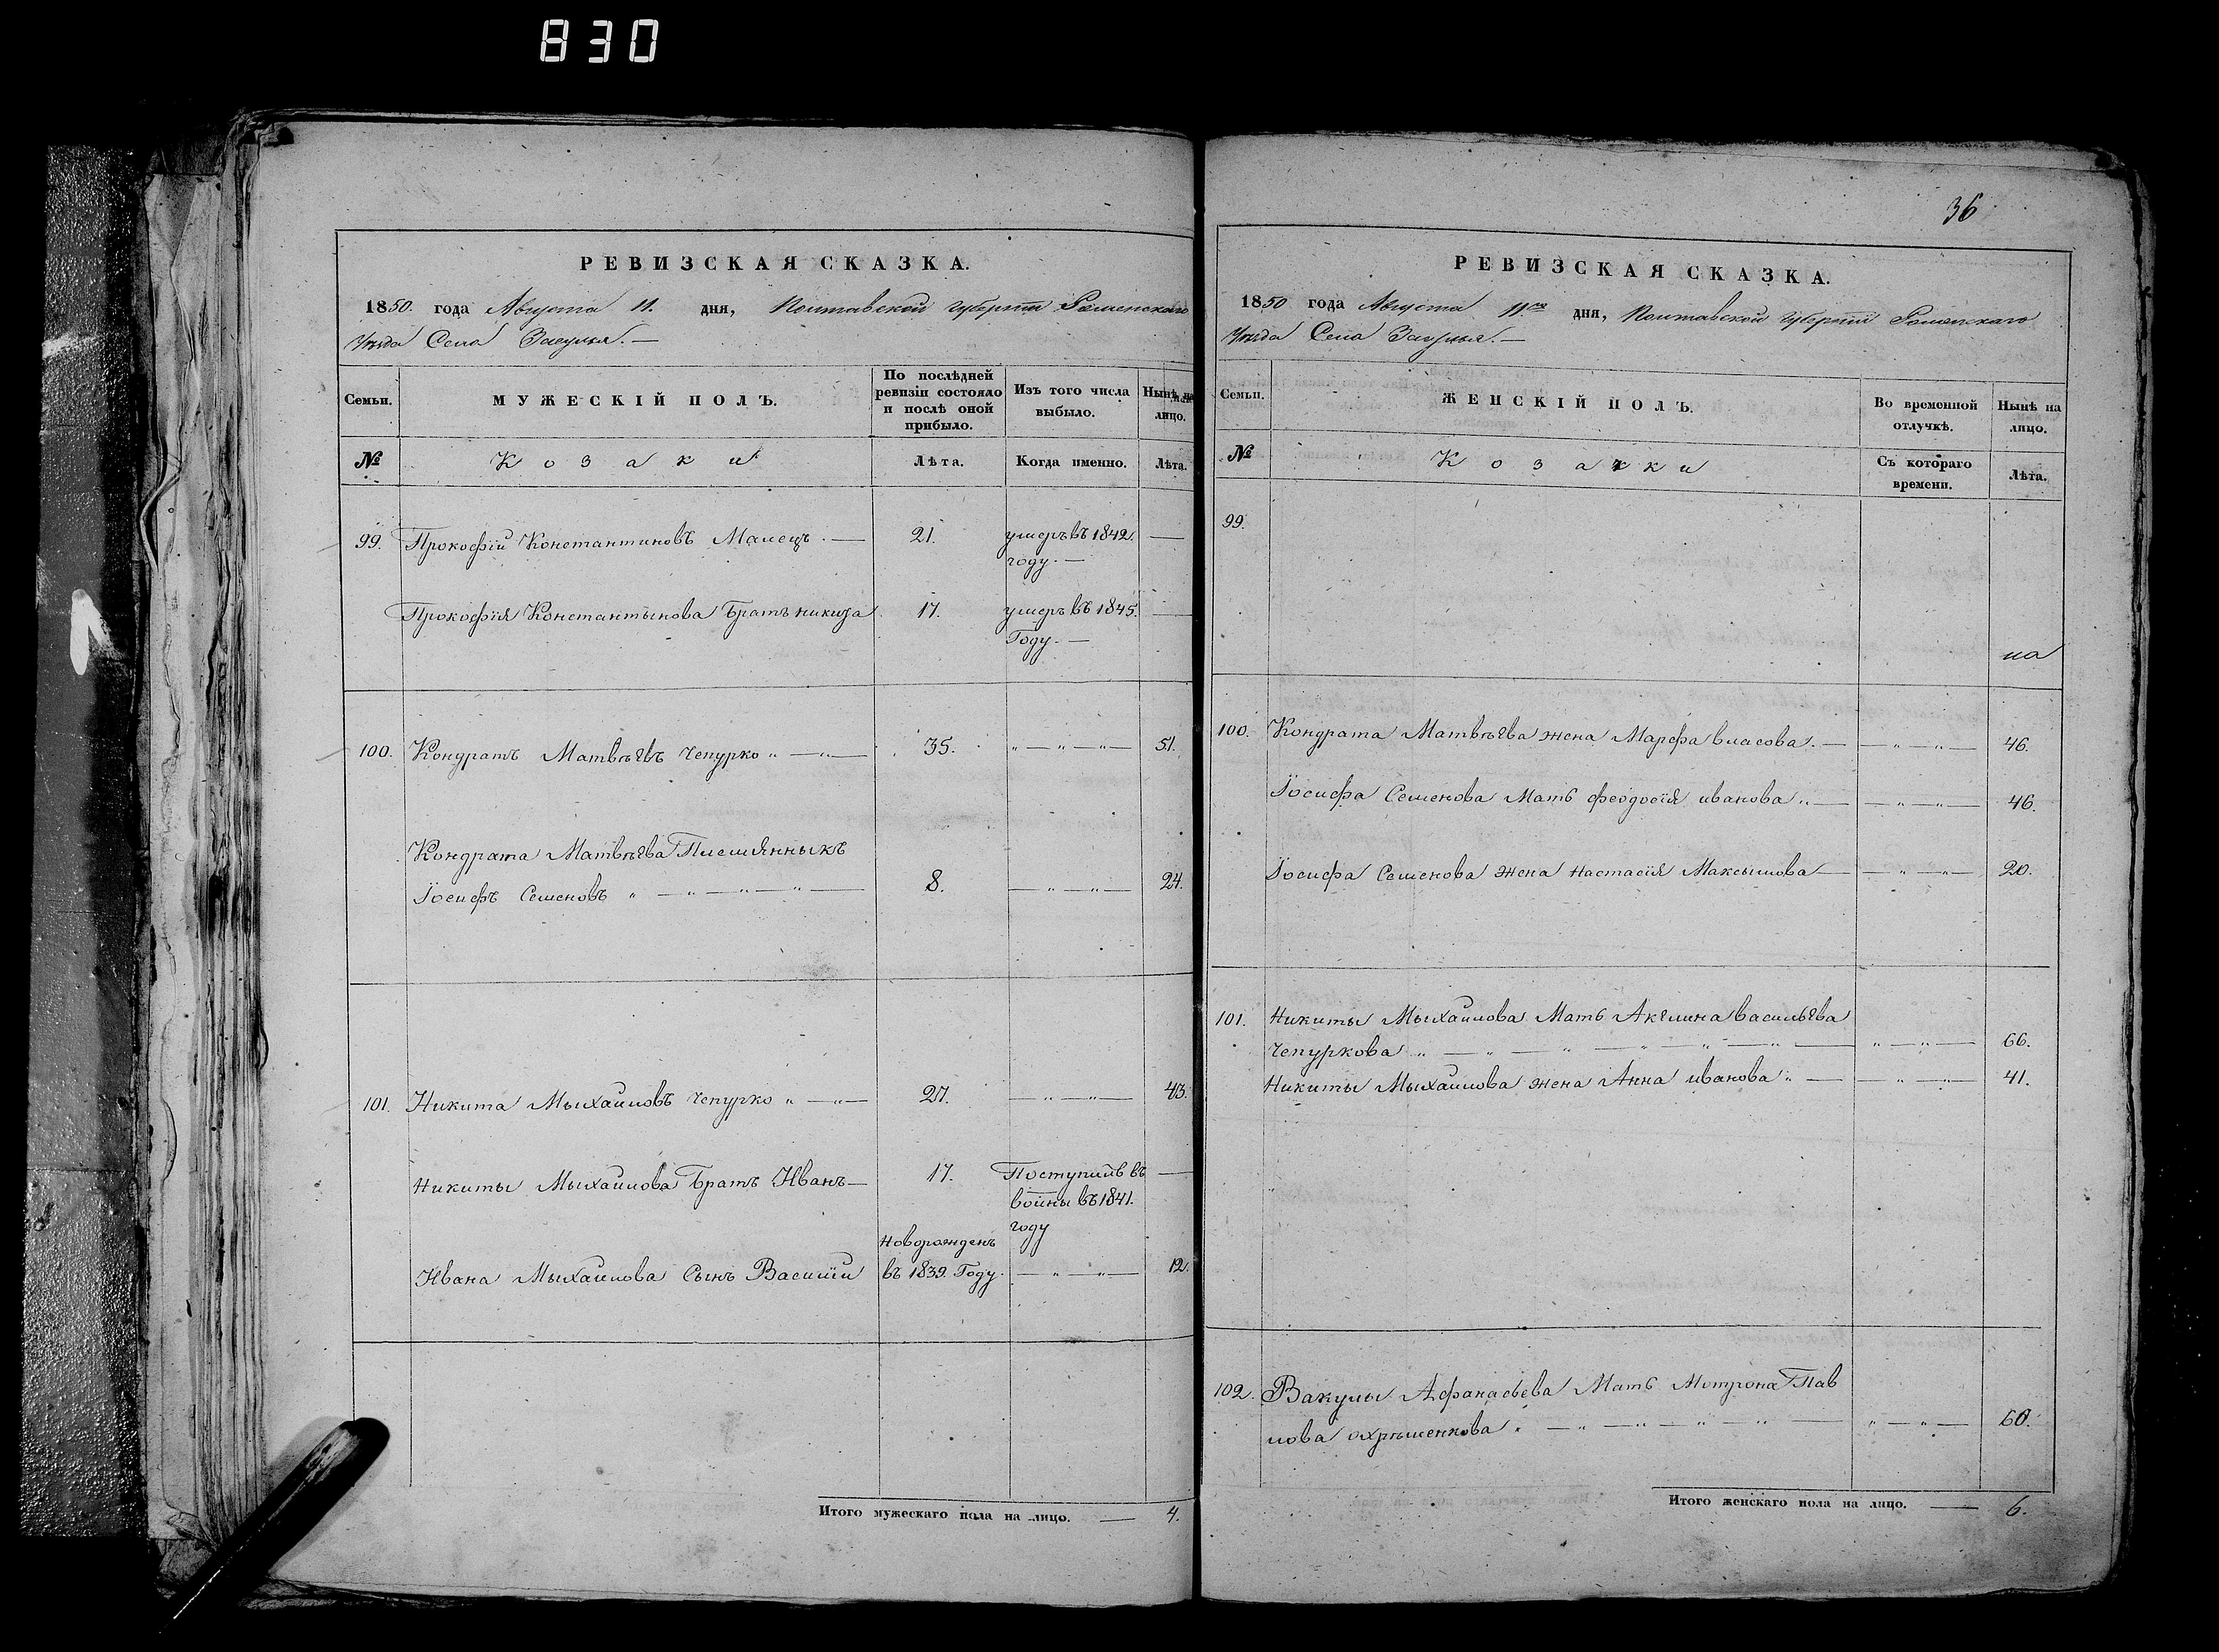 830
РЕВИЗСКАЯ СКАЗКА.
1850. года Августа 11. дня, Полтавской губерніи Роменскаго
Уѣзда Села Засулья. —
Семьи.
МУЖЕСКІЙ ПОЛЪ.
По послѣдней ревизіи состояло и послѣ оной прибыло.
Изъ того числа выбыло.
Нынѣ на лицо.
№
Козаки
Лѣта.
Когда именно.
Лѣта.
99. Прокофій Константиновъ Малецъ. — 21. умеръ въ 1842. —
году. —
Прокофія Константынова Братъ никита 17. умеръ въ 1845. —
Году. —
100. Кондратъ Матвѣевъ Чепурко „ — „ — 35. „ — „ — „ — 51.
Кондрата Матвѣева Племянныкъ
Іосифъ Семеновъ „ — „ — „ — „ — 8. — „ — „ — 24.
101. Никита Мыхайловъ Чепурко „ — „ — 27. — „ — „ — 43.
Никиты Мыхайлова Братъ Иванъ — 17. Поступилъ въ —
войны въ 1841.
году
Новорожденъ
Ивана Мыхайлова Сынъ Василій въ 1839. Году. — „ — „ — 12.
Итого мужескаго пола на лицо. — 4.
36
РЕВИЗСКАЯ СКАЗКА.
1850 года Августа 11го дня, Полтавской Губерніи Роменскаго
Уѣзда Села Засулья. —
Семьи.
ЖЕНСКІЙ ПОЛЪ.
Во временной отлучкѣ.
Нынѣ на лицо.
№
Козачки
Съ котораго времени.
Лѣта.
99.
100. Кондрата Матвѣева жена Марфа власова. — — „ — „ — 46.
Іосифа Семенова Мать феодосія иванова „ — — „ — „ — 46.
Іосифа Семенова жена настасія Максымова — — „ — „ — 20.
101. Никиты Мыхайлова Мать Акелина васильева
Чепуркова „ — „ — „ — „ — „ — „ — „ — „ — 66.
Никиты Мыхайлова жена Анна иванова „ — — „ — „ — 41.
102. Вакулы Афанасьева Мать Мотрона Пав
лова охрѣменкова „ — „ — „ — „ — „ — „ — „ — 60.
Итого женскаго пола на лицо. — 6.